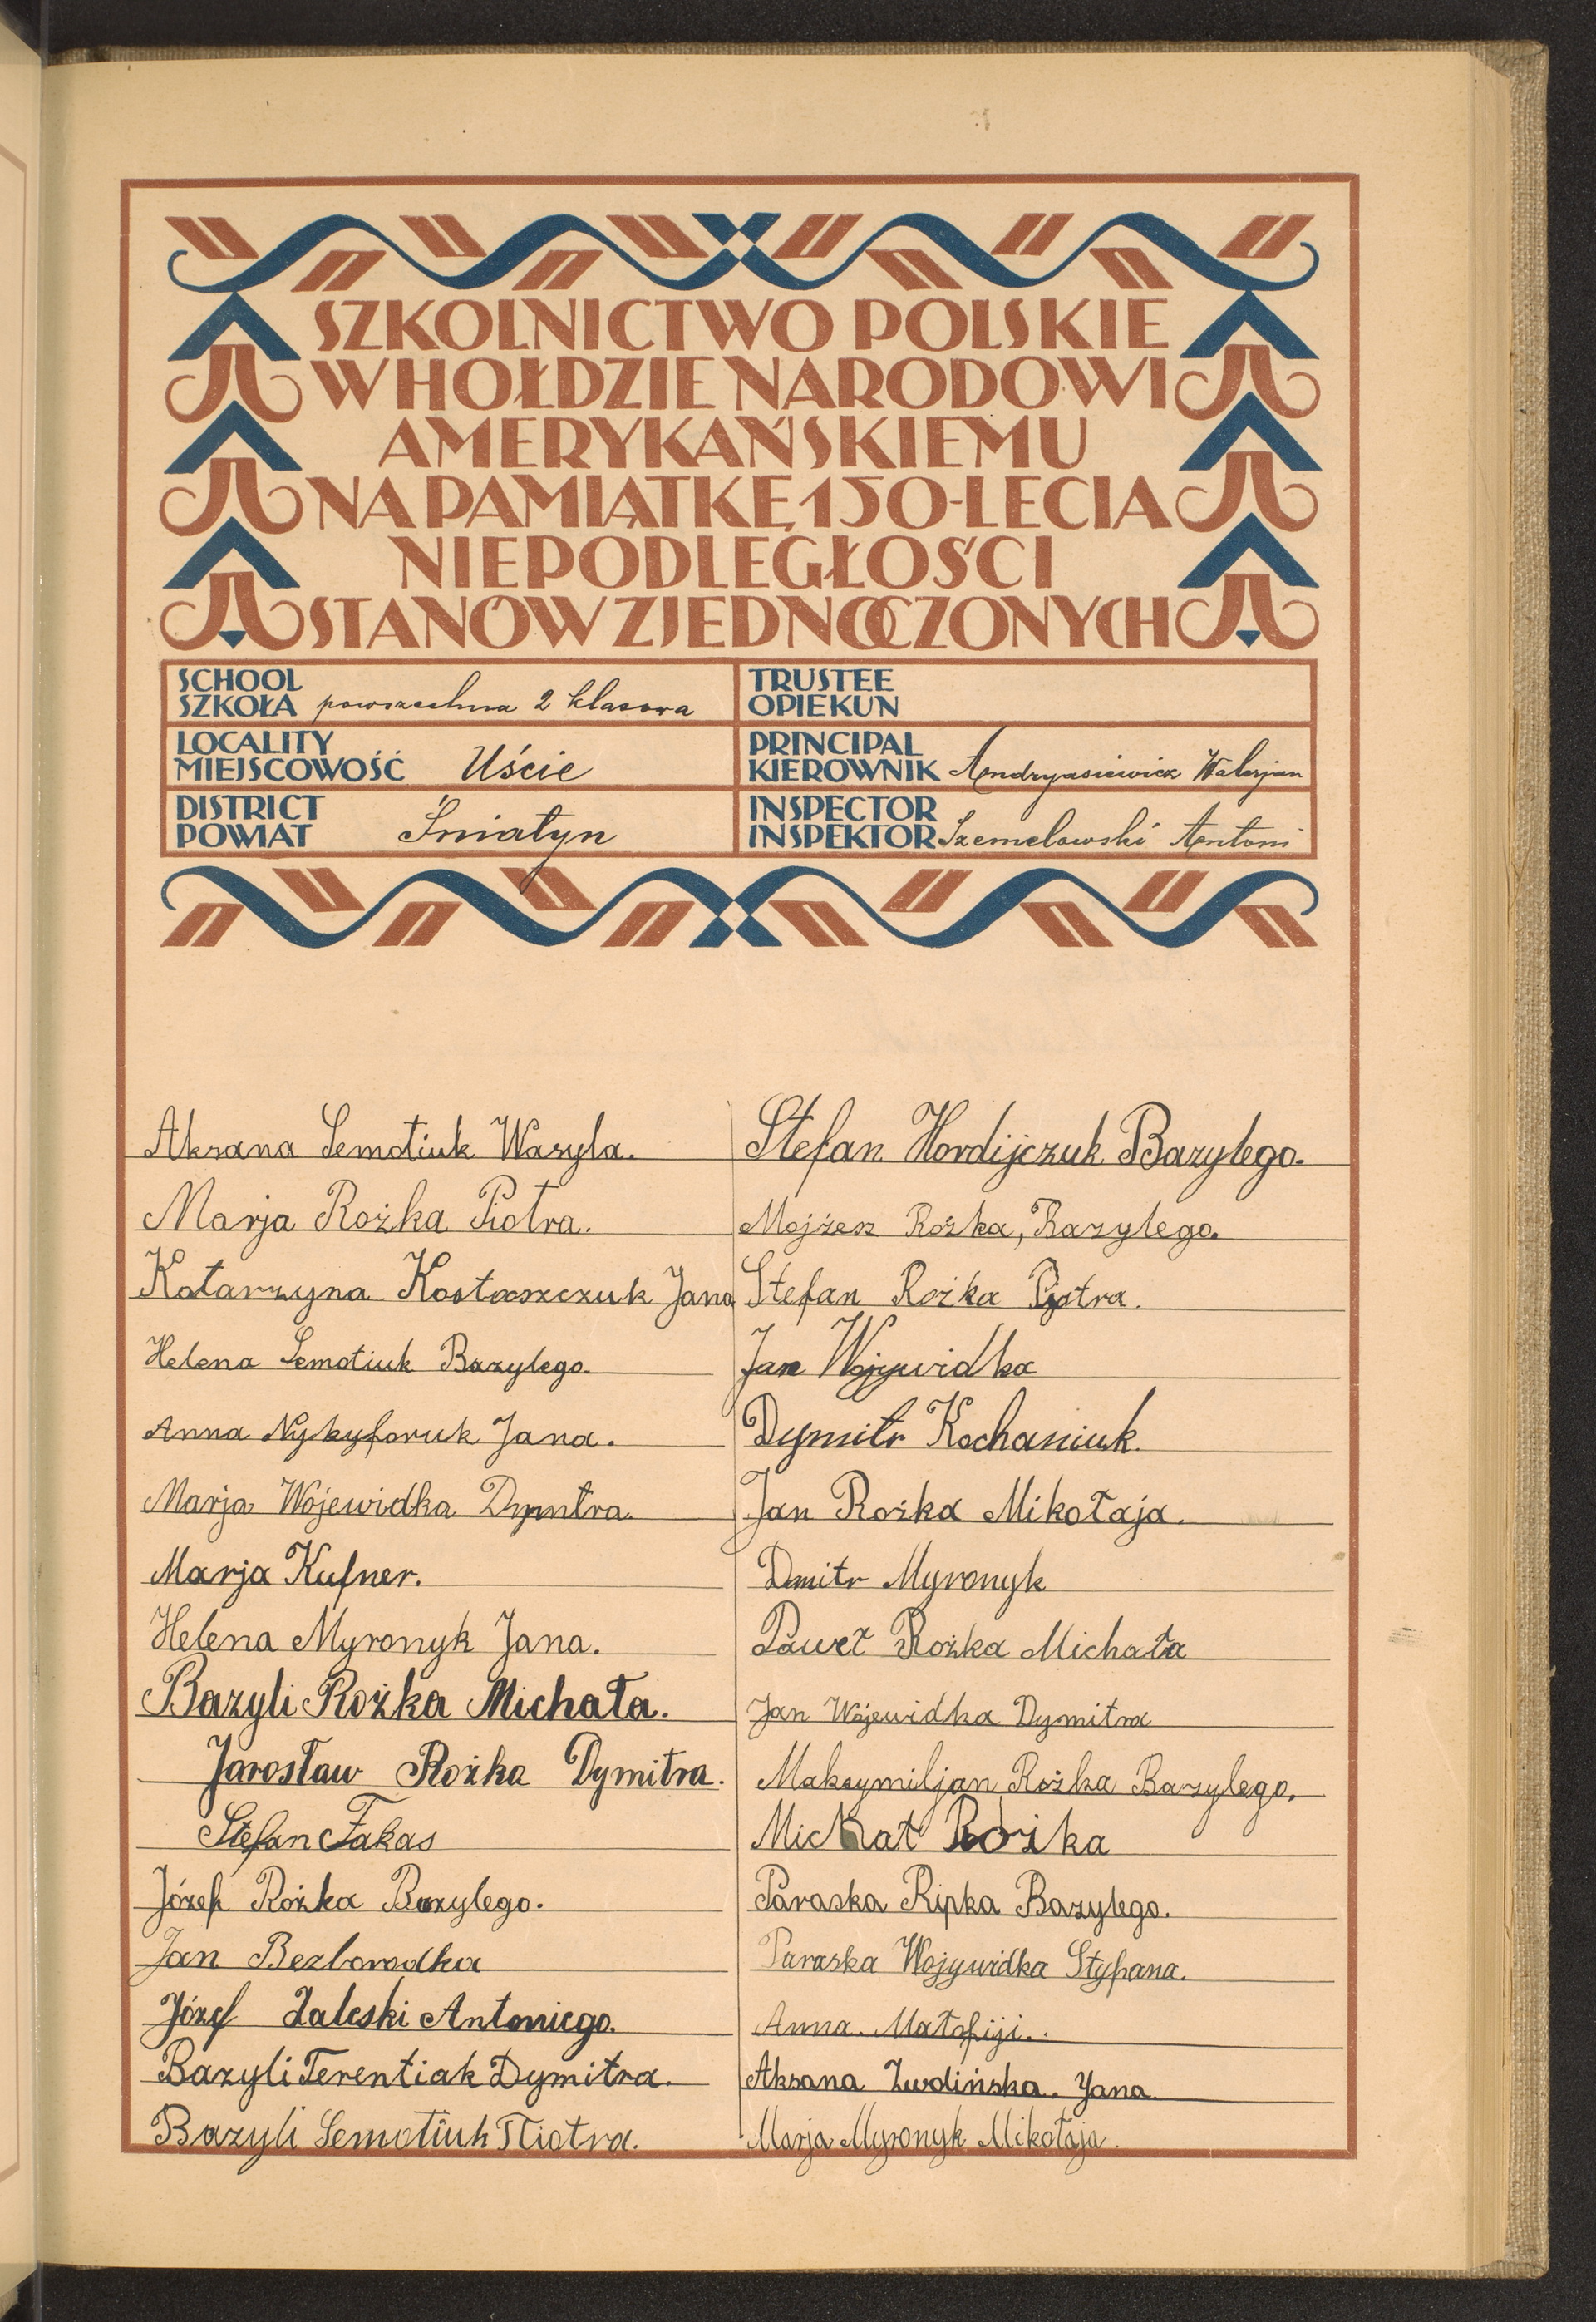 SZKOLNICTWO POLSKIE
W HOŁDZIE NARODOWI
AMERYKAŃSKIEMU
NA PAMIĄTKĘ 150-LECIA
NIEPODLEGŁOŚCI
STANÓW ZJEDNOCZONYCH
SCHOOL
SZKOŁA powszechna 2 klasowa
TRUSTEE
OPIEKUN
LOCALITY
MIEJSCOWOŚĆ Uście
PRINCIPAL
KIEROWNIK Andryasiewicz Walerjan
DISTRICT
POWIAT Śniatyn
INSPECTOR
INSPEKTOR Szemelowski Antoni
Aksana Semotiuk Wasyla.
Marja Rożka Piotra.
Katarzyna Kostaszczuk Jana
Helena Semotiuk Bazylego.
Anna Nykyforuk Jana.
Marja Wojewidka Dymtra.
Marja Kufner.
Helena Myronyk Jana.
Bazyli Rożka Michała.
Jarosław Rożka Dymitra.
Stefan Fakas
Józef Rożka Bazylego.
Jan Bezborodka
Józef Zaleski Antoniego.
Bazyli Terentiak Dymitra.
Bazyli Semotiuk Piotra.
Stefan Hordijczuk Bazylego.
Mojżesz Rożka, Bazylego.
Stefan Rożka Piotra.
Jan Wojywidka
Dymitr Kochaniuk.
Jan Rożka Mikołaja.
Dmitr Myronyk
Paweł Rożka Michała
Jan Wojewidka Dymitra
Maksymiljan Rożka Bazylego.
Michał Rożka
Paraska Ripka Bazylego.
Paraska Wojywidka Styfana.
Anna. Matofiji..
Aksana Zwolińska. Jana
Marja Myronyk Mikołaja.